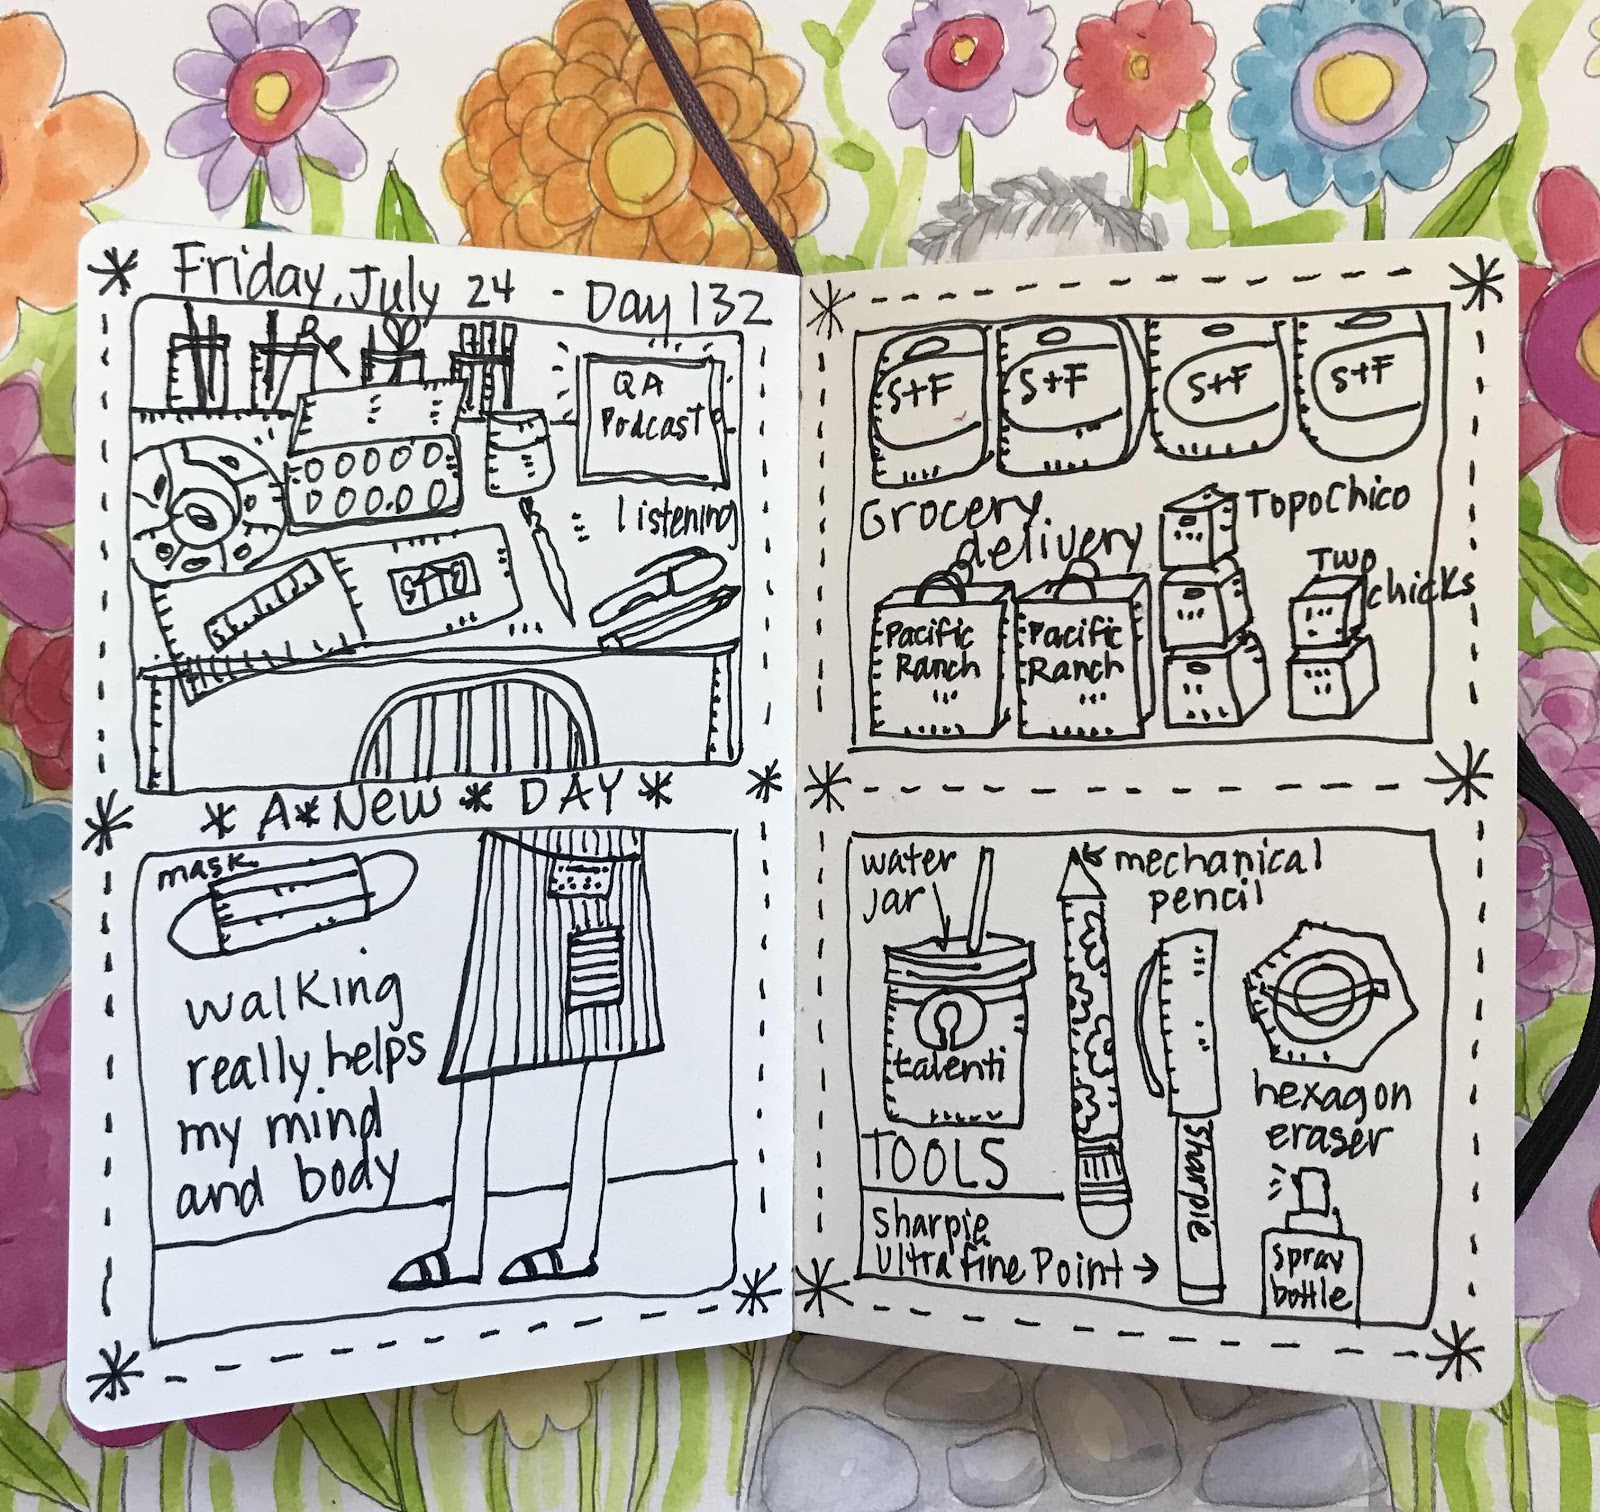 Friday, July 24 - Day 132
QA
Podcast
listening
* A * New * DAY *
mask
walking
really helps
my mind
and body
S+F S+F S+F S+F
Grocery
delivery
TopoChico
Two
chicks
Pacific
Ranch
Pacific
Ranch
water
jar
mechanical
pencil
talenti
hexagon
eraser
TOOLS
Sharpie
Sharpie
Ultra fine Point →
spray
bottle